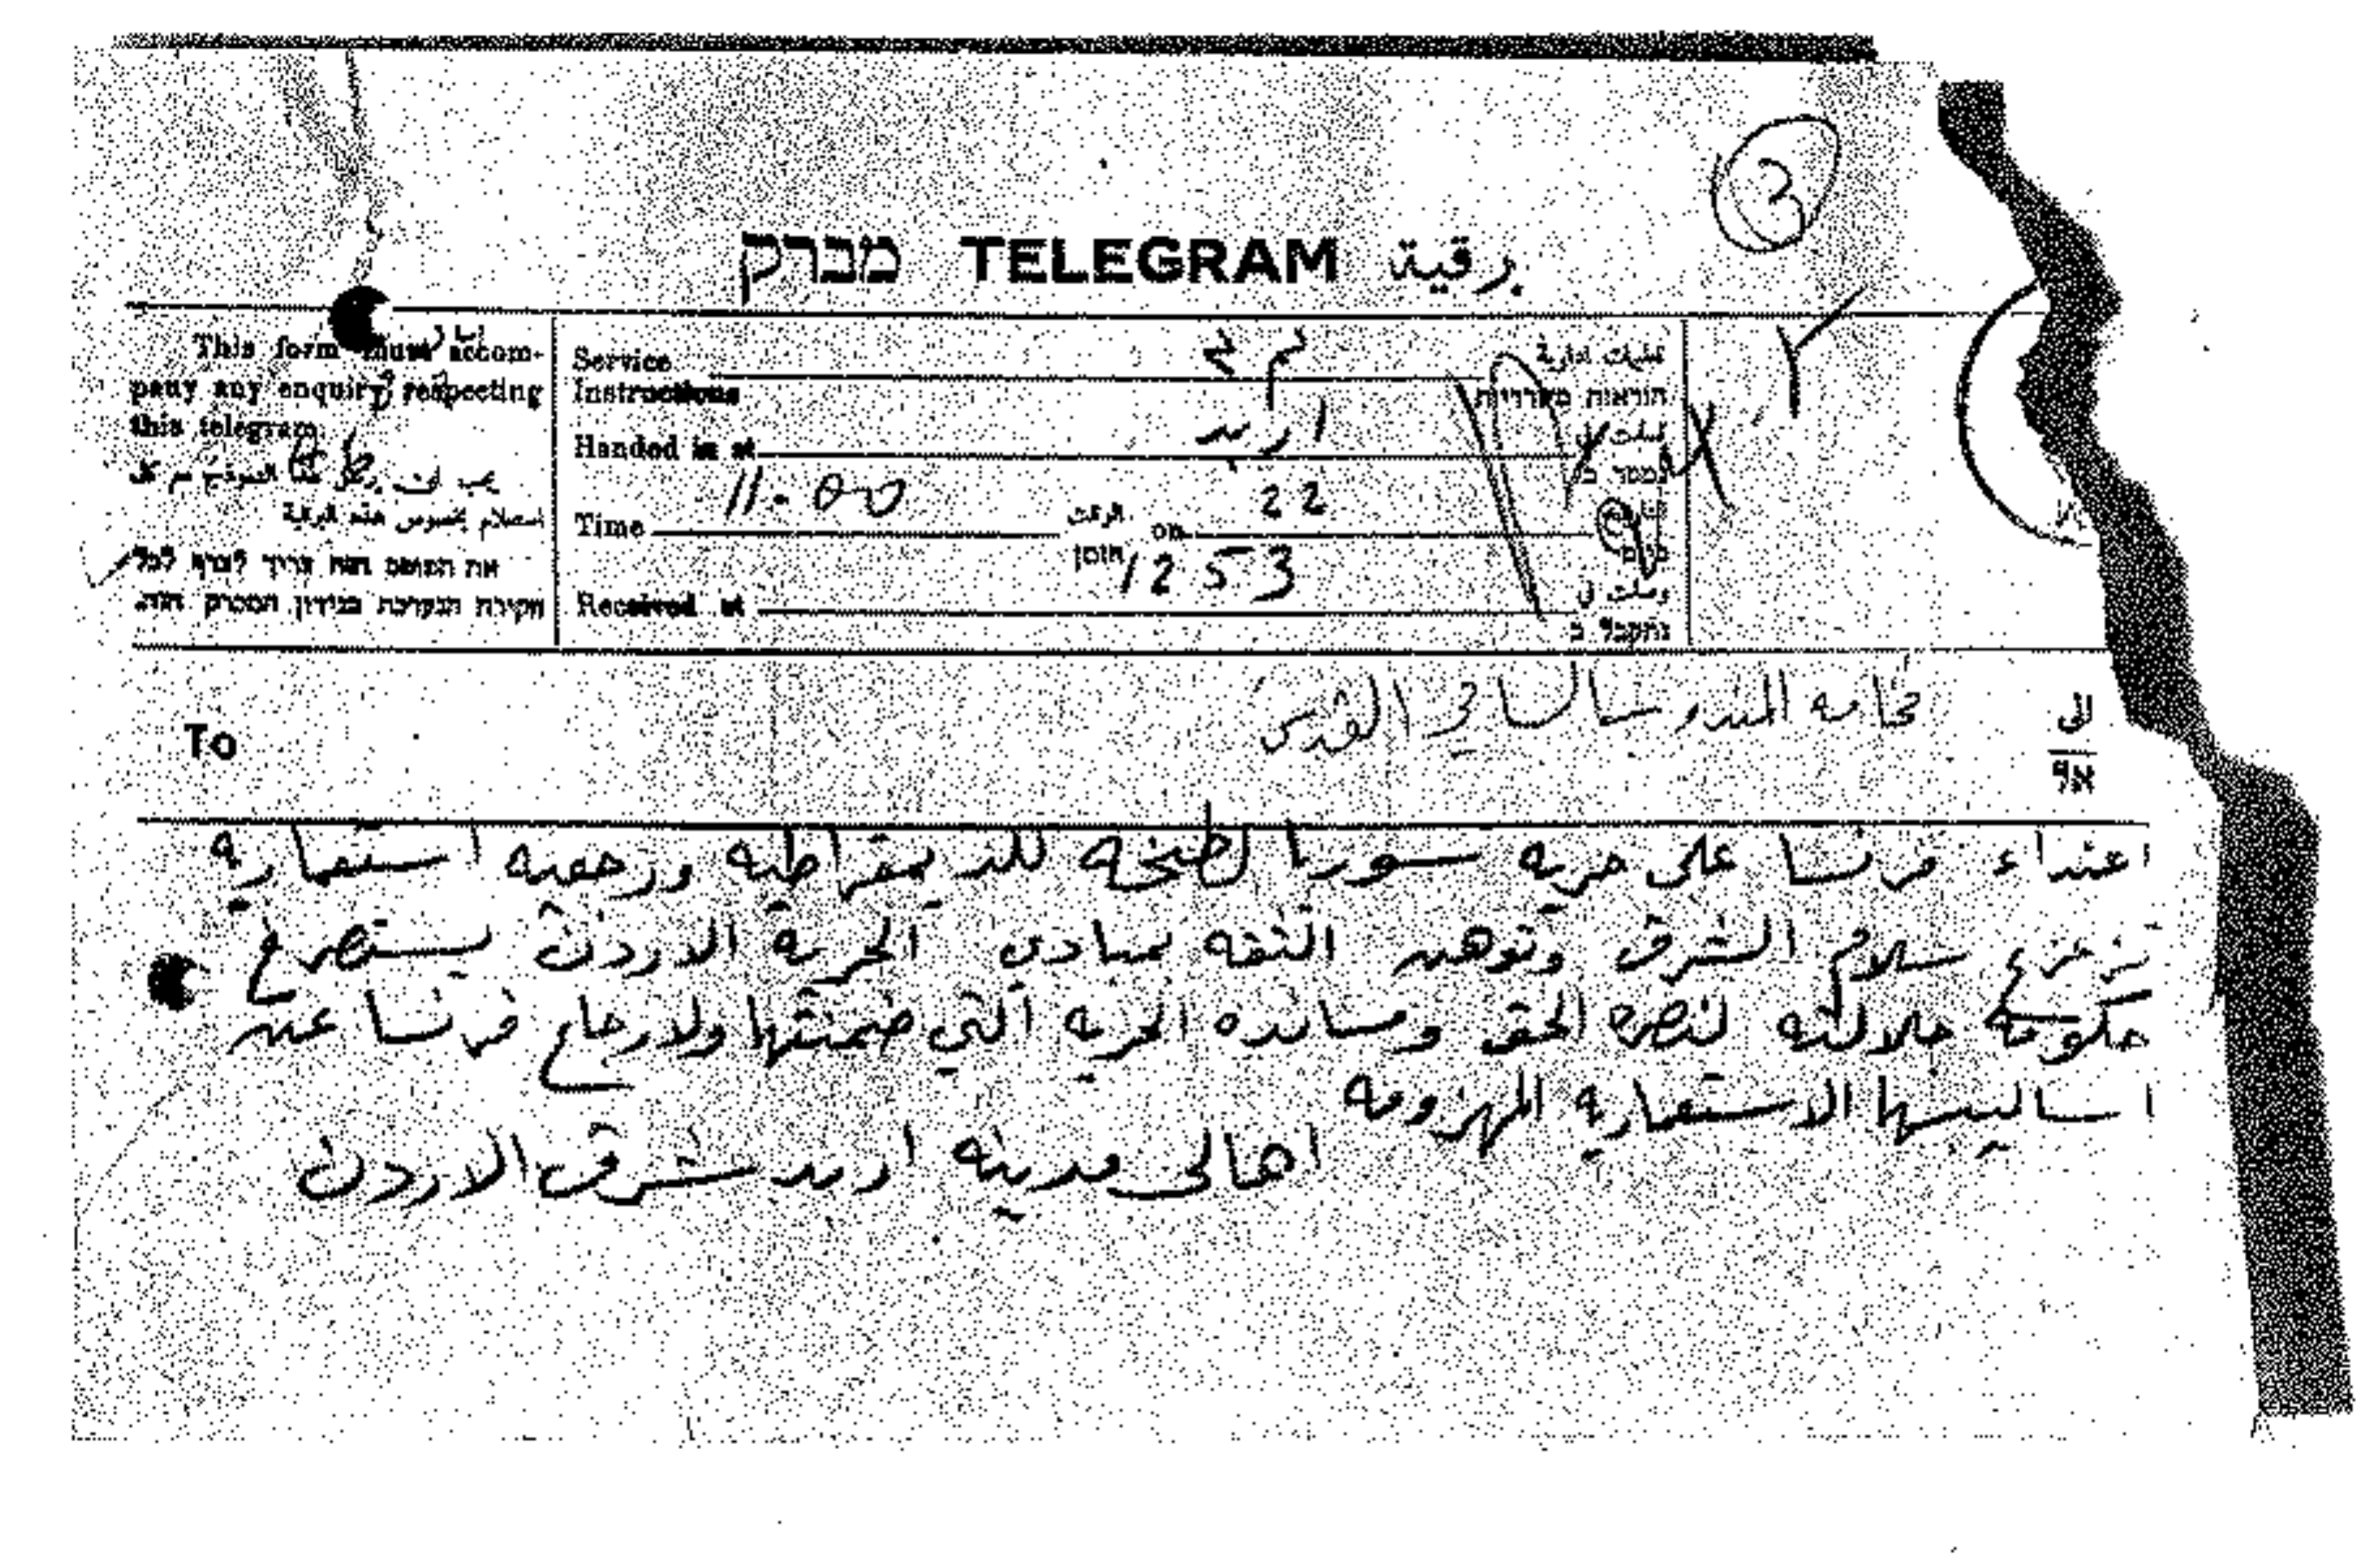 3
מברק TELEGRAM برقية
This form must accom-
pany any enquiry respecting
this telegram.
يجب ان يرفق هذا النموذج مع كل
استعلام بخصوص هذه البرقية
את הטופס הזה צריך לצרף לכל
חקירת הנערכת בנידון המברק הזה.
Service Instructions ٢٣ تعليمات ادارية
הוראות משרדיות
Handed in at اربد
Time 11-00 الوقت on 22
הזמן 1253
Received at وصلت في
נתקבל ב
To فخامه المندوب السامي القدس الى
אל
اعتداء فرنسا على حريه سوريا لطخه للديمقراطيه ورجعيه استعماريه
تزعزع سلام الشرق وتوهين الثقه بمبادئ الحريه الاردن يستصرخ
حكومة جلالته لنصره الحق ومسانده الحريه التي ضمنتها ولارجاع فرنسا عن
اساليبها الاستعماريه المهزومه
اهالى مدينه اربد شرق الاردن